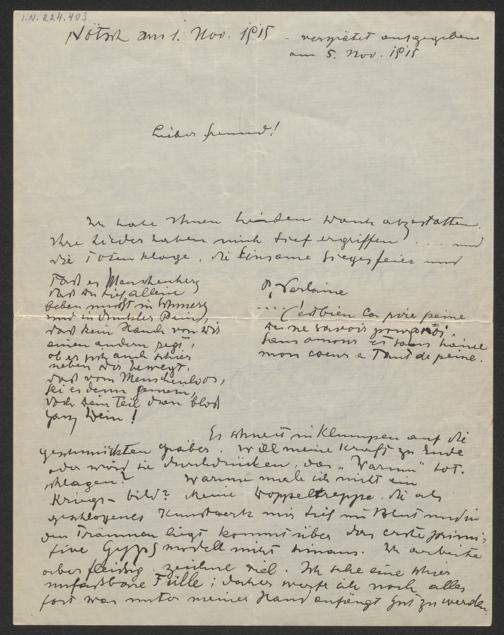 I.N. 224.403
Nötsch am 1. Nov. 1915 - verspätet ausgegeben
am 5. Nov. 1915
Lieber Freund!
Ich habe Ihnen Dank abzustatten.
Ihre Lieder haben mich tief ergriffen .... und
die Totenklage, die einsame Siegesfeier und
Menschenherz
Daß du allein
beben mußt in Schmerz
und in dunkler Pein,
daß kein Hauch von dir
einen andern
ob er sich auch schier
neben dir bewegt.
daß vom Menschenloos,
sei es denn gemein,
doch dein Teil dran bloß
ganz Dein!
P. Verlaine
.... C'est bien la pire peine
de ne savoir pourquoi,
sans amour et sans haine
mon coeur a tant de peine.
Es schneit in Klumpen auf die
geschmückten Gräber. Will meine Kraft zu Ende
oder wird sie durchdrücken, das „Warum" tot-
schlagen? Warum male ich nicht ein
Kriegs-bild? Meine Doppeltreppe, die als
Kunstwerk mir tief im Blut und in
den Träumen liegt kommt über das erste primi-
tive Gypsmodell nicht hinaus. Ich arbeite
aber fleißig, zeichne viel. Ich sehe eine schier
unfassbare Fülle; daher werfe ich noch alles
fort was unter meiner Hand anfängt gut zu werden